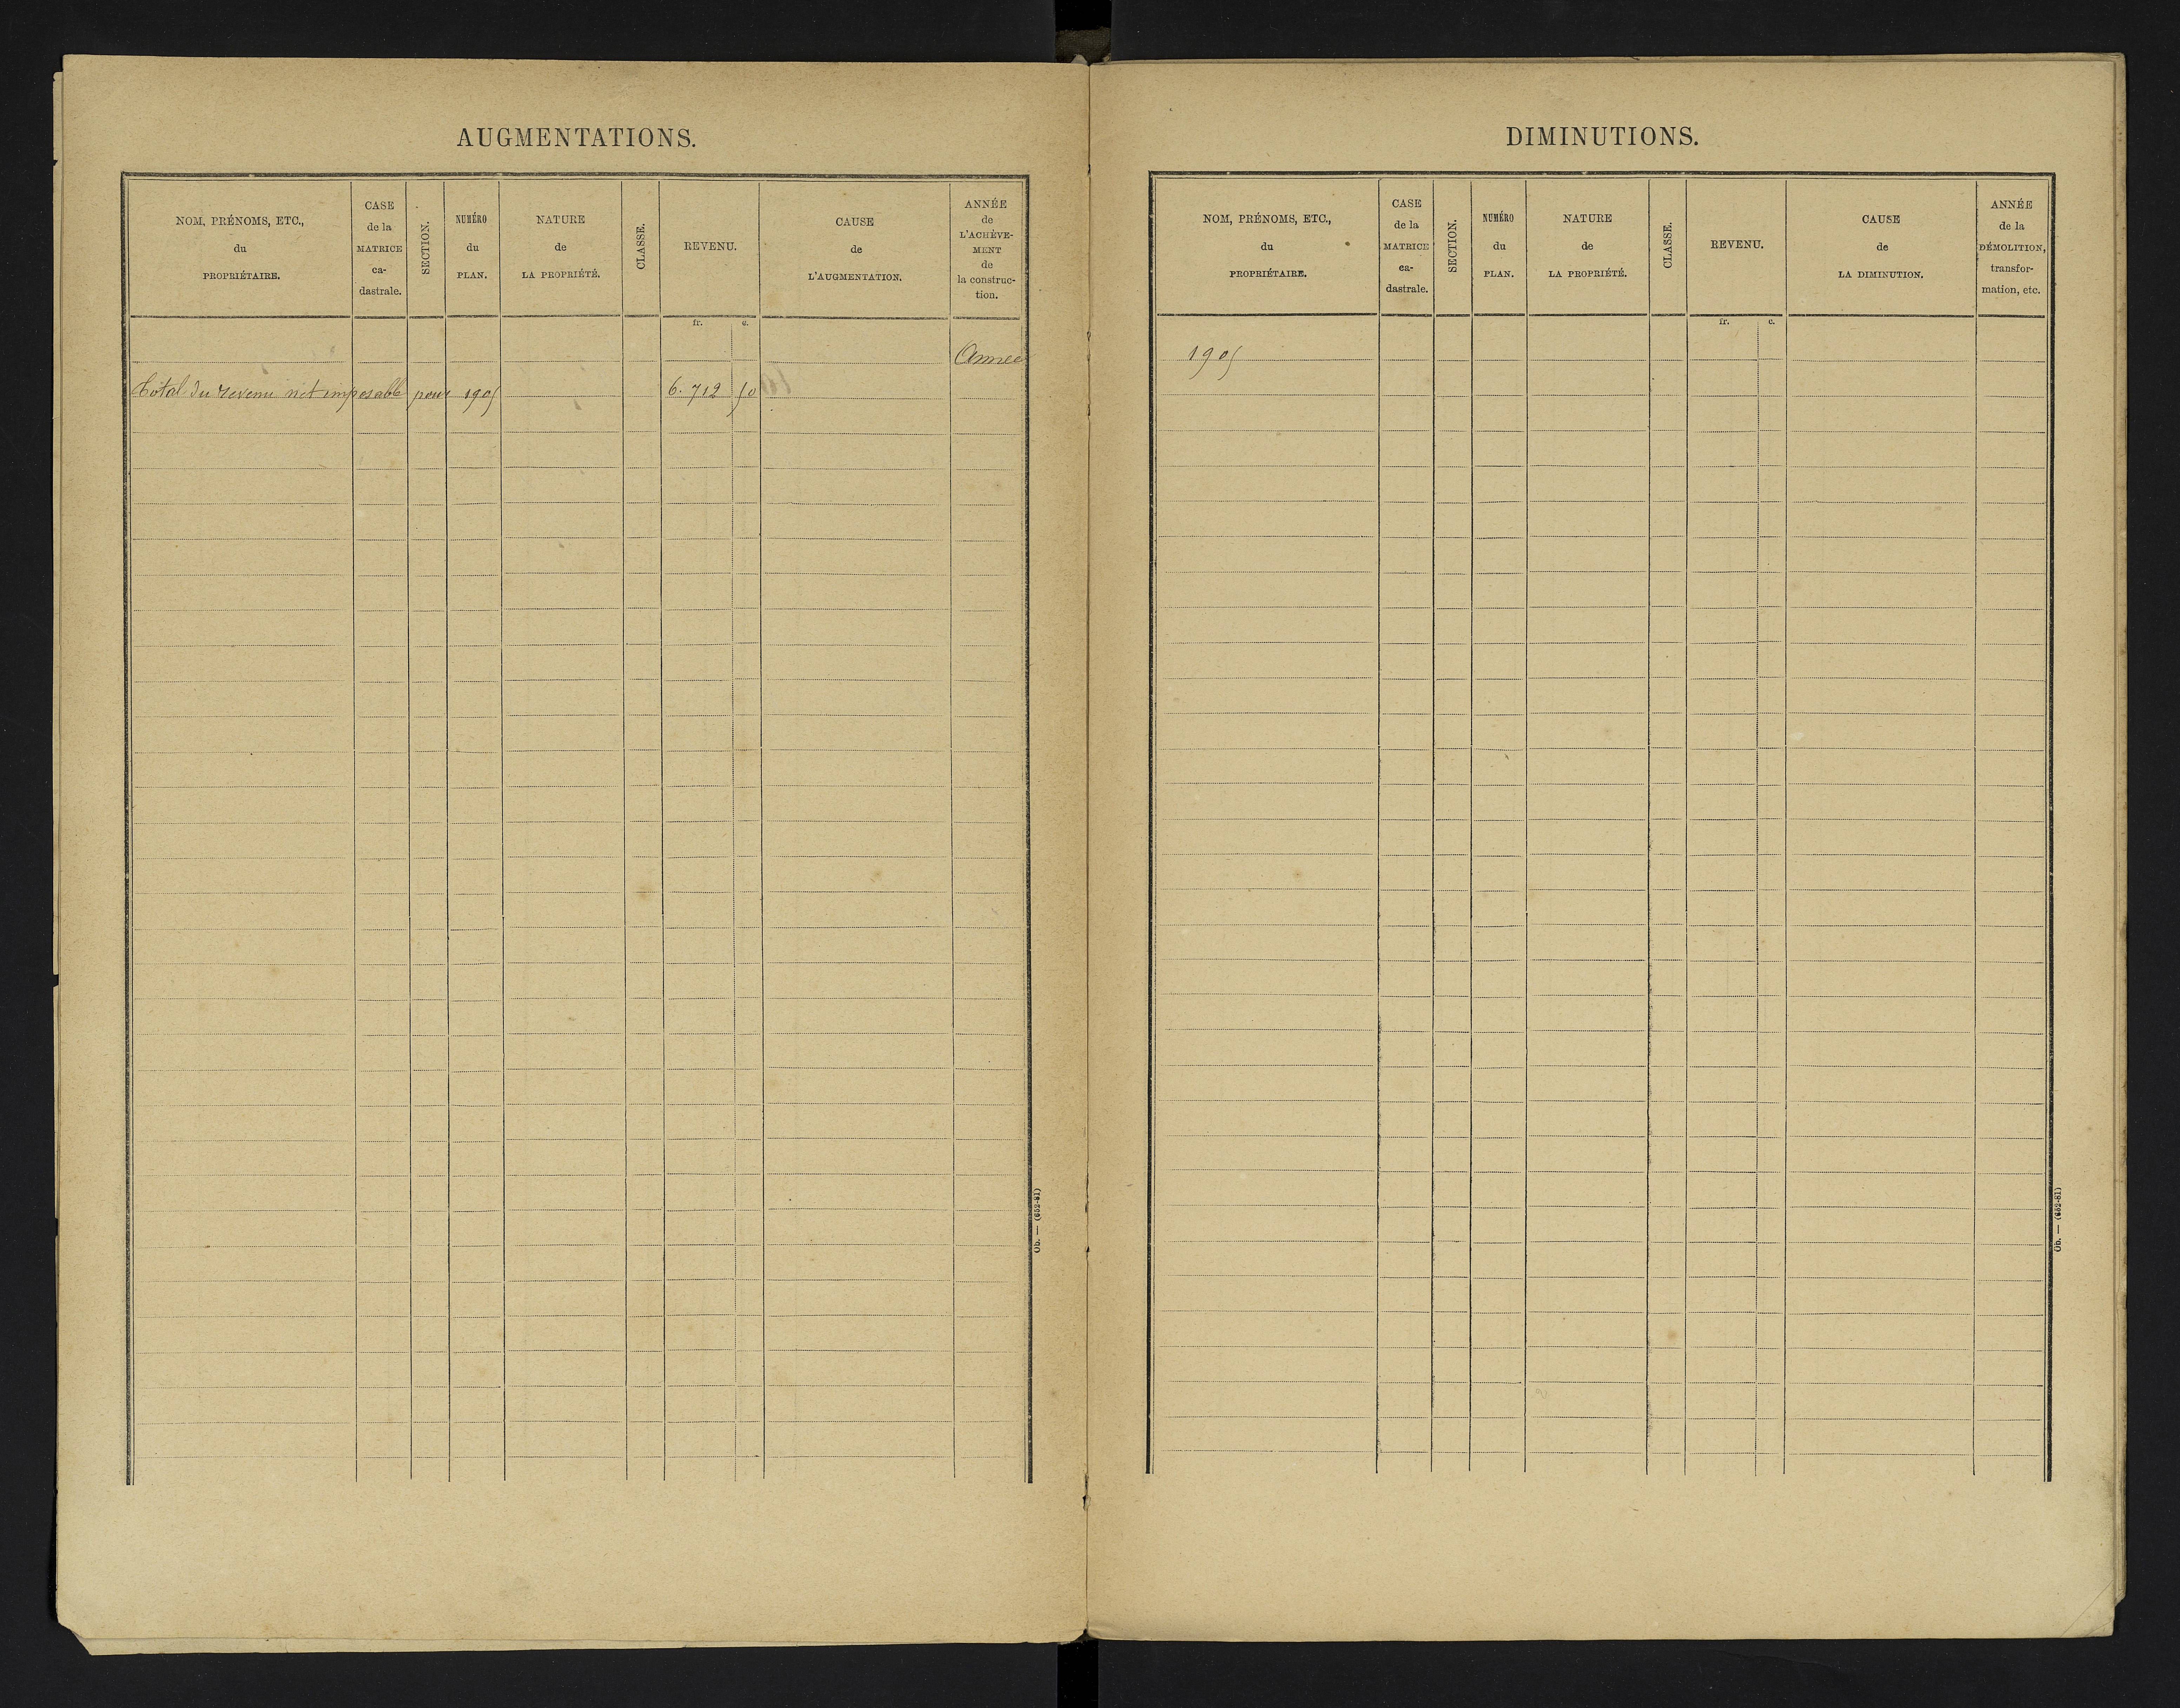 AUGMENTATIONS.
NOM, PRÉNOMS, ETC.,
du
PROPRIÉTAIRE.
CASE
de la
MATRICE
ca-
dastrale.
SECTION.
NUMÉRO
du
PLAN.
NATURE
de
LA PROPRIÉTÉ.
CLASSE.
REVENU.
CAUSE
de
L'AUGMENTATION.
ANNÉE
de
L'ACHÈVE-
MENT
de
la construc-
tion.
fr. c.
Année
Total du revenu net imposable pour 1905 6.712 50
Ob. — (652-81)
DIMINUTIONS.
NOM, PRÉNOMS, ETC.,
du
PROPRIÉTAIRE.
CASE
de la
MATRICE
ca-
dastrale.
SECTION.
NUMÉRO
du
PLAN.
NATURE
de
LA PROPRIÉTÉ.
CLASSE.
REVENU.
CAUSE
de
LA DIMINUTION.
ANNÉE
de la
DÉMOLITION,
transfor-
mation, etc.
fr. c.
1905
Ob. — (652-81)